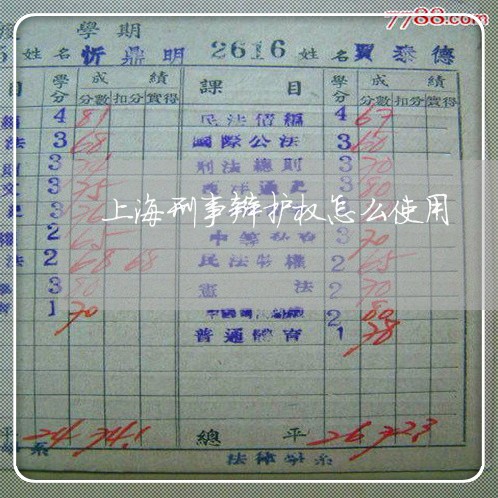 7788.com
學期
姓名 忻鼎明 2616 姓名 賈泰德
目 學分 成績 課目 學分 成績
分數 扣分 實得 分數 扣分 實得
4 81 民法債編 4 67
法 3 68 國際公法 3 60
3 刑法總則 3 70
文 3 75 3 80
上海刑事辩护权怎么使用
2 65 3 70
法 2 68 68 民法物權 2 65
3 80 憲法 2 70
1 70 2 80
普通體育 1 78
平 24 74.1 總平 26 72.3
系 法律學系